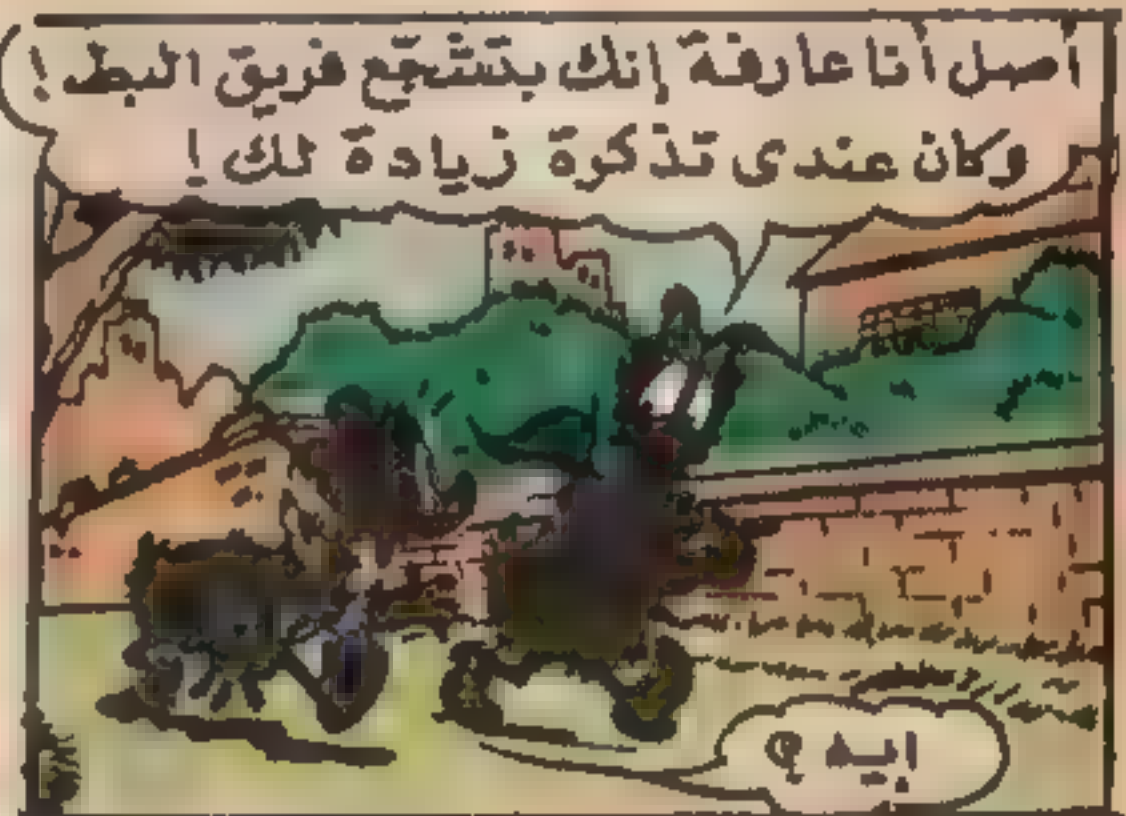 أصل أنا عارفة إنك بتشجع فريق البط!
وكان عندى تذكرة زيادة لك!
إيه؟